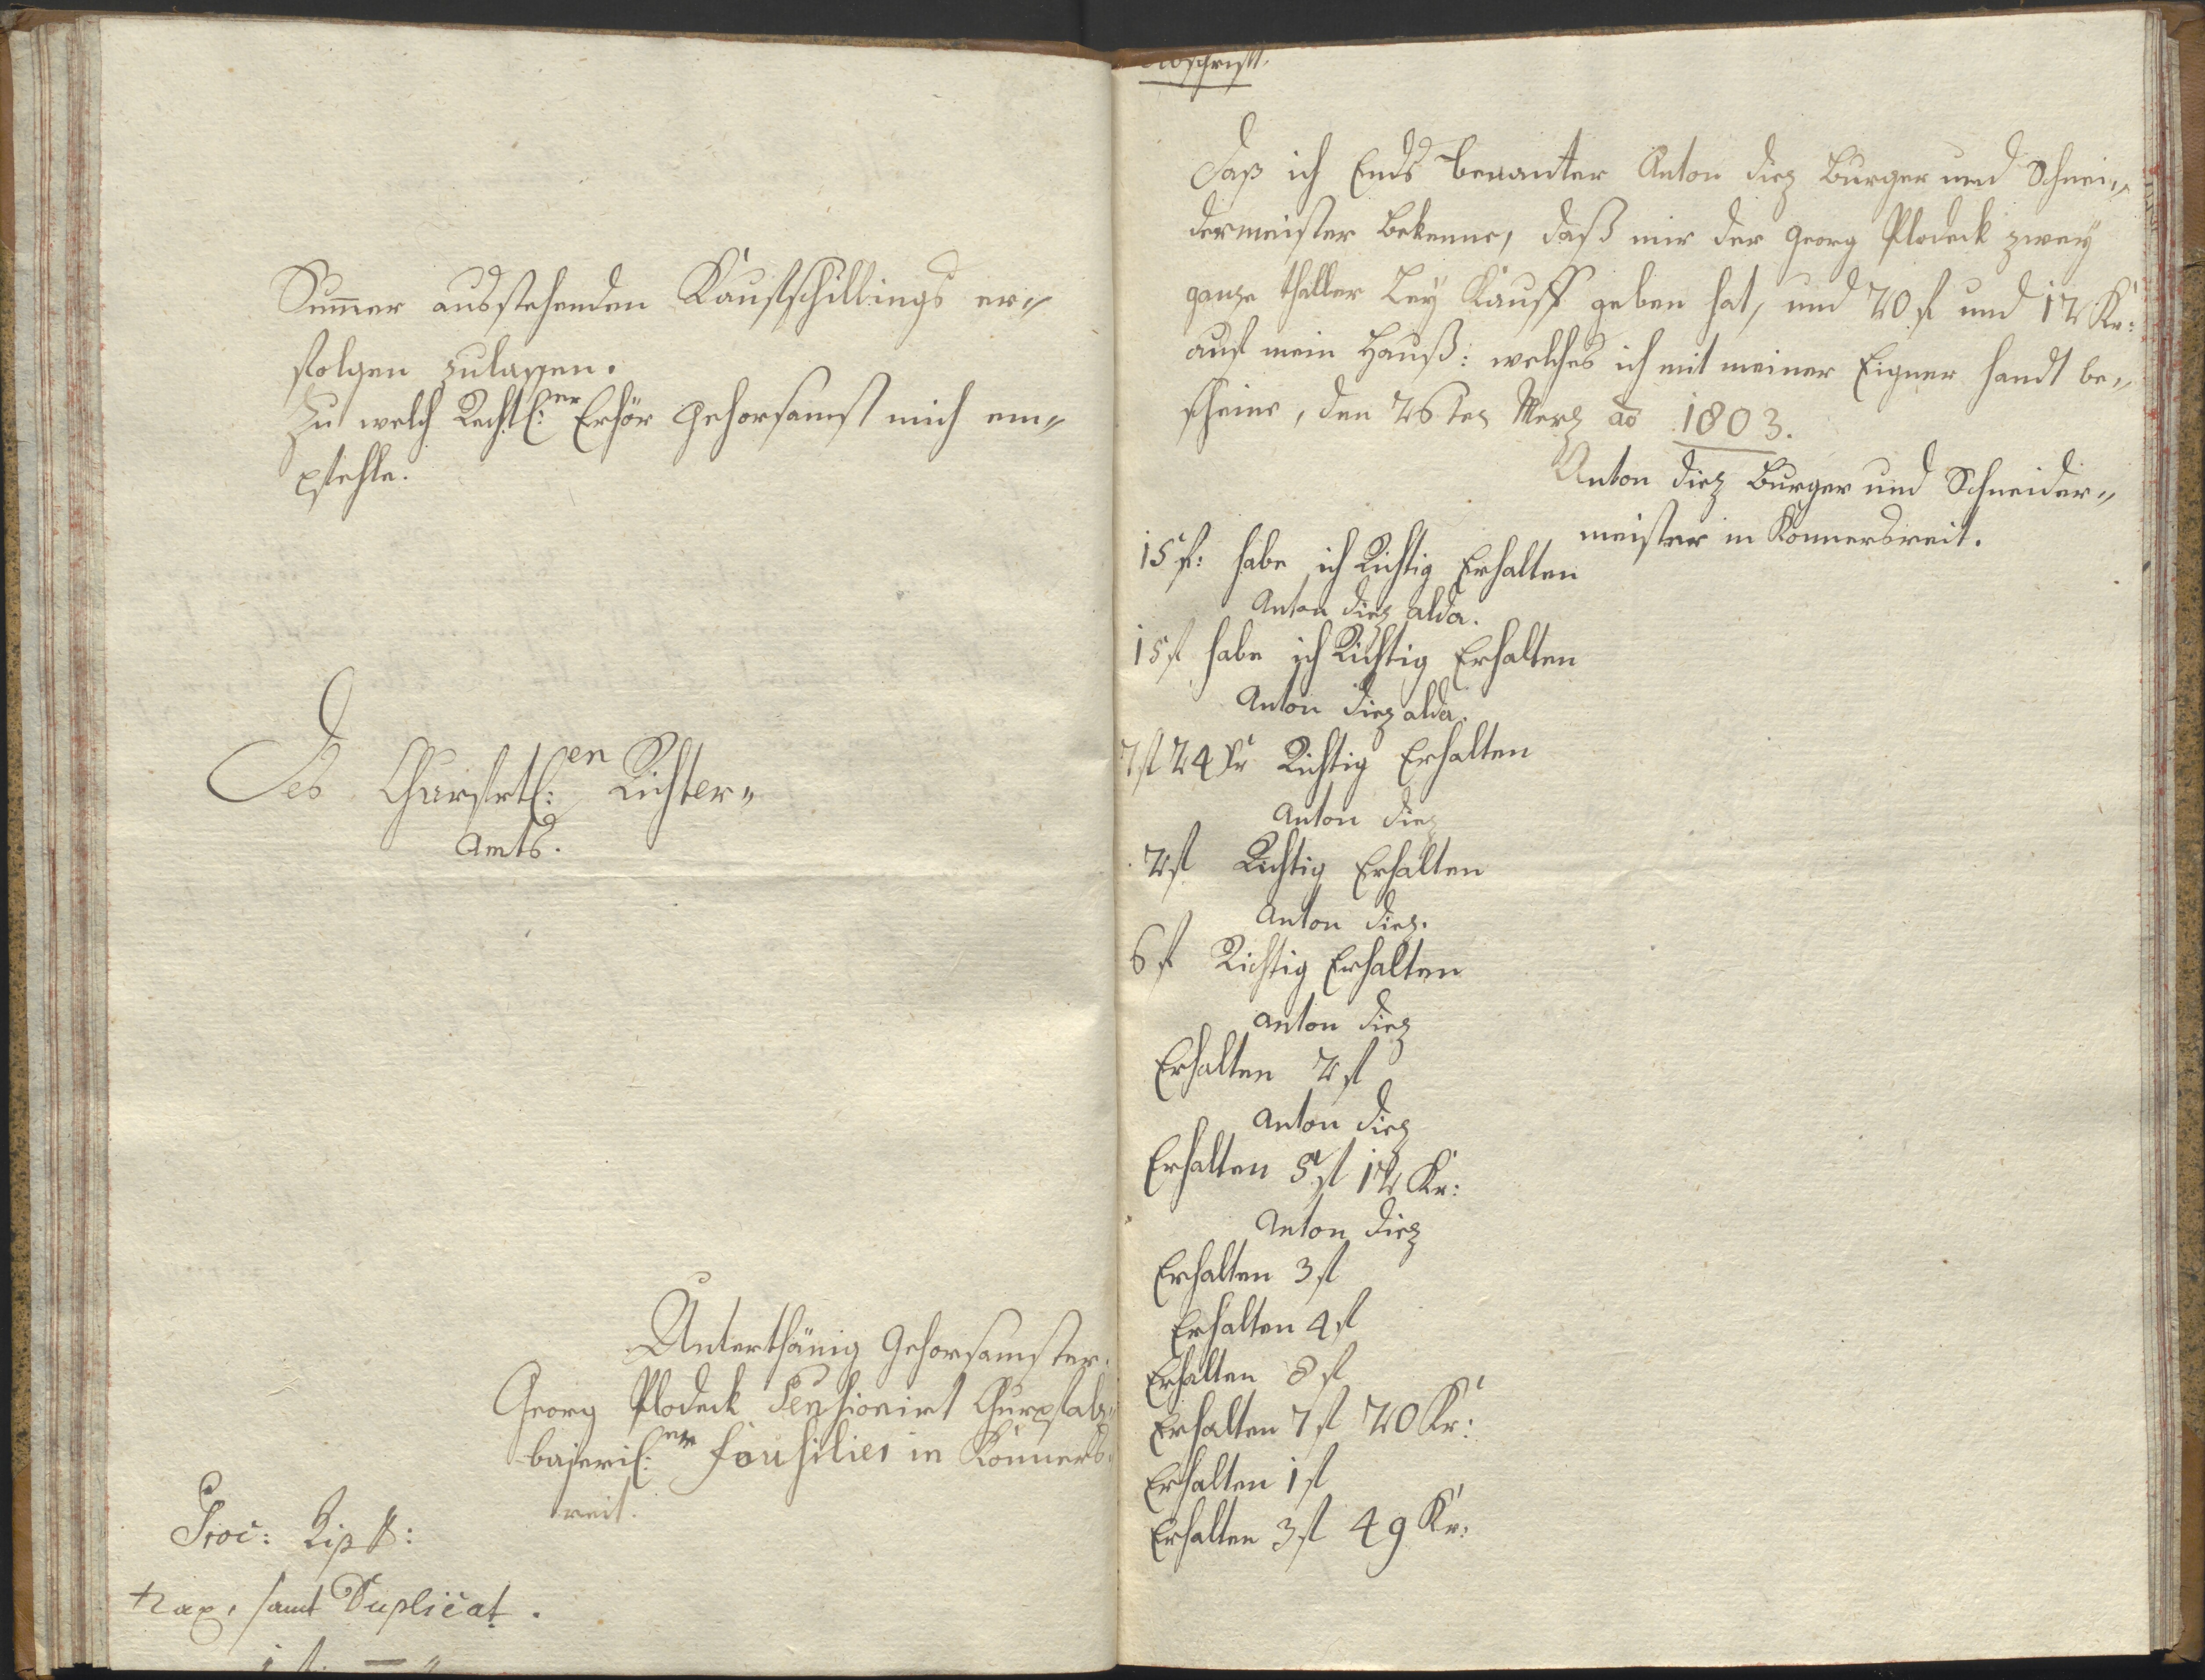 Sum̄er ausstehenden Kaufschillings er„
folgen zulassen.
Zu welch Rechtl:er Erhör gehorsamst mich em„
pfehle.
Des Churfrtl:en Richter„
Amts.
Unterthänig gehorsamster
Georg Plodeck Pensionirt Churpfalz„
bajeril:er Fousilier in Konners„
reit.
Proc:
tax, samt Duplicat.
1 fl. — „
Abschrift.
Daß ich Ends benanter Anton Diez Burger und Schnei„
dermeister bekenne, daß mir der Georg Plodeck zwey
ganze thaller Ley Kauff geben hat, und 20 fl und 12 Kr:
auf mein Hauß: welches ich mit meiner Eigner handt be„
scheine, den 26ten Merz ao 1803.
Anton Diez Burger und Schneider„
meister in Konnersreit.
15 fl: habe ich Richtig Erhalten
Anton Diez alda.
15 fl habe ich Richtig Erhalten
Anton Diez alda.
7 fl 24 Kr Richtig Erhalten
Anton Diez
2 fl Richtig Erhalten
Anton Diez.
6 fl Richtig Erhalten
Anton Diez
Erhalten 2 fl
Anton Diez
Erhalten 5 fl 12 Kr:
Anton Diez
Erhalten 3 fl
Erhalten 4 fl
Erhalten 8 fl
Erhalten 7 fl 20 Kr:
Erhalten 1 fl
Erhalten 3 fl 49 Kr: